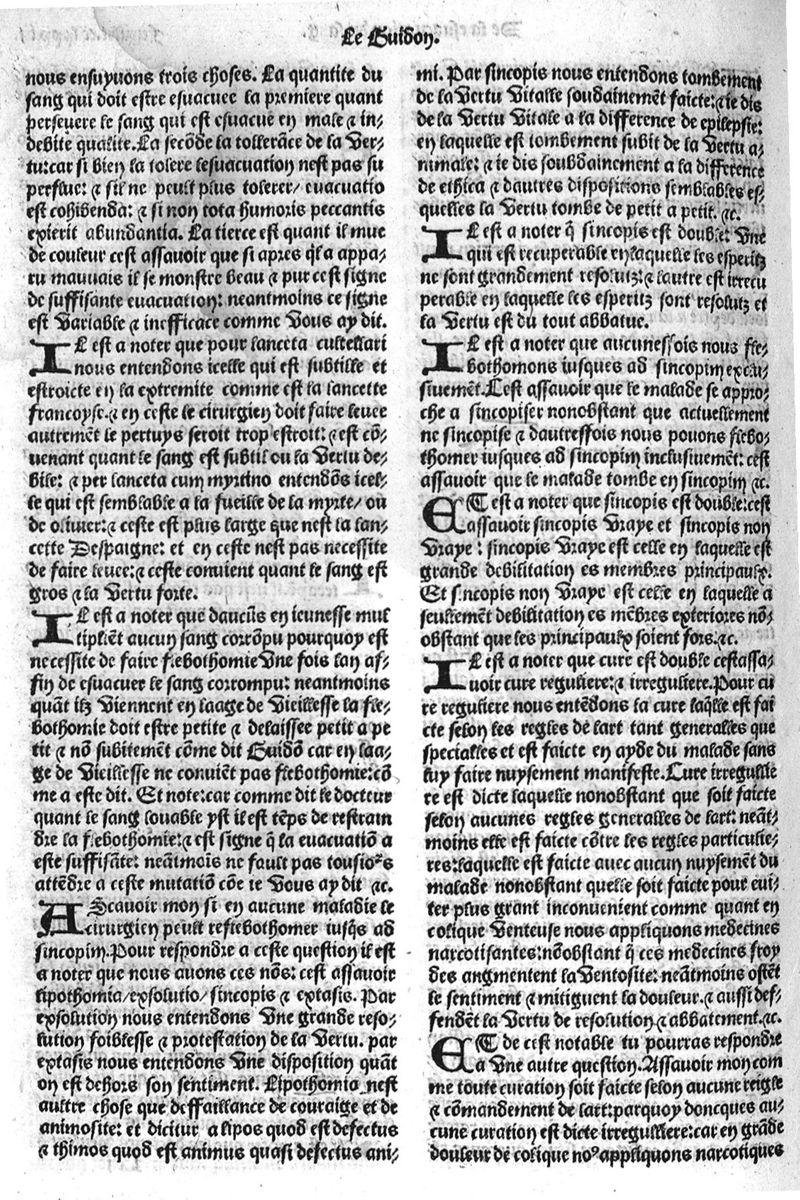 Le Guidon.
nous ensuyuons trois choses. La quantite du
sang qui doit estre esuacuee la premiere quant
perseuere le sang qui est esuacue en male ⁊ in⸗
debite qualite. La secõde la tollerãce de la Ver⸗
tu: car si bien la tolere lesuacuation nest pas su
perflue: ⁊ sil ne peult plus tolerer/ euacuatio
est cohibenda: ⁊ si non tota humoris peccantis
exierit abundantia. La tierce est quant il mue
de couleur cest assauoir que si apres q̃l a appa⸗
ru mauuais il se monstre beau ⁊ pur cest signe
de suffisante euacuation: neantmoins ce signe
est Variable ⁊ inefficace comme Vous ay dit.
IL est a noter que pour lanceta cultellari
nous entendons icelle qui est subtille et
estroicte en la extremite comme est la lancette
francoyse. ⁊ en ceste le cirurgien doit faire leuee
autremẽt le pertuys seroit trop estroit: ⁊ est cõ⸗
uenant quant le sang est subtil ou la Vertu de⸗
bile: ⁊ per lanceta cum myrtino entendõs icel⸗
le qui est semblable a la fueille de la myrte/ ou
de oliuer: ⁊ ceste est plus large que nest la lan⸗
cette Despaigne: et en ceste nest pas necessite
de faire leuee: ⁊ ceste conuient quant le sang est
gros ⁊ la Vertu forte.
IL est a noter que daucũs en ieunesse mul
tiplient aucun sang corrõpu pourquoy est
necessite de faire flebothomie Vne fois lan af⸗
fin de esuacuer le sang corrompu: neantmoins
quãt ilz Viennent en laage de Vieillesse la fle⸗
bothomie doit estre petite ⁊ delaissee petit a pe
tit ⁊ nõ subitemẽt cõme dit Guidõ car en laa⸗
ge de Vieillesse ne conuiẽt pas flebothomie: cõ
me a este dit. Et note: car comme dit le docteur
quant le sang louable yst il est tẽps de restrain
dre la flebothomie: ⁊ est signe q̃ la euacuatiõ a
este suffisãte: neãtmoĩs ne fault pas tousio⁹s
attẽdre a ceste mutatiõ cõe ie Vous ay dit ⁊c.
AScauoir mon si en aucune maladie le
cirurgien peult reflebothomer iusq̃s ad
sincopim. Pour respondre a ceste question il est
a noter que nous auons ces nõs: cest assauoir
lipothomia/ exsolutio/ sincopis ⁊ extasis. Par
exsolution nous entendons Vne grande reso⸗
lution foiblesse ⁊ protestation de la Vertu. par
extasis nous entendons Vne disposition quãt
on est dehors son sentiment. Lipothomia nest
aultre chose que deffaillance de couraige et de
animosite: et dicitur a lipos quod est defectus
⁊ thimos quod est animus quasi defectus ani⸗
mi. Par sincopis nous entendons tombement
de la Vertu Vitalle soudainemẽt faicte: ⁊ ie dis
de la Vertu Vitale a la difference de epilepsie:
en laquelle est tombement subit de la Vertu a⸗
nimale: ⁊ ie dis soubdainement a la difference
de ethica ⁊ dautres dispositions semblables es⸗
quelles la Vertu tombe de petit a petit. ⁊c.
IL est a noter q̃ sincopis est double: Vne
qui est recuperable en laquelle les esperitz
ne sont grandement resolutz: ⁊ lautre est irrecu
perable en laquelle les esperitz sont resolutz et
la Vertu est du tout abbatue.
IL est a noter que aucunesfois nous fle⸗
bothomons iusques ad sincopim exclu⸗
siuemẽt. Cest assauoir que le malade se appro⸗
che a sincopiser nonobstant que actuellement
ne sincopise ⁊ dautresfois nous pouons flebo⸗
thomer iusques ad sincopim inclusiuemẽt: cest
assauoir que le malade tombe en sincopim ⁊c.
ET est a noter que sincopis est double: cest
assauoir sincopis Vraye et sincopis non
Vraye: sincopis Vraye est celle en laquelle est
grande debilitation es membres principaulx.
Et sincopis non Vraye est celle en laquelle a
seullemẽt debilitation es mẽbres exteriores nõ⸗
obstant que les principaulx soient fors. ⁊c.
IL est a noter que cure est double cestassa⸗
uoir cure reguliere: ⁊ irreguliere. Pour cu
re reguliere nous entẽdons la cure laq̃lle est fai
cte selon les regles de lart tant generalles que
specialles et est faicte en ayde du malade sans
luy faire nuysement manifeste. Cure irregulie
re est dicte laquelle nonobstant que soit faicte
selon aucunes regles generalles de lart: neãt⸗
moins elle est faicte cõtre les regles particulie⸗
res: laquelle est faicte auec aucun nuysemẽt du
malade nonobstant quelle soit faicte pour eui⸗
ter plus grant inconuenient comme quant en
colique Venteuse nous appliquons medecines
narcotisantes: nõobstant q̃ ces medecines froy
des augmentent la Ventosite: neãtmoins ostẽt
le sentiment ⁊ mitiguent la douleur. ⁊ aussi def⸗
fendẽt la Vertu de resolution ⁊ abbatement. ⁊c.
ET de cest notable tu pourras respondre
a Vne autre question. Assauoir mon com
me toute curation soit faicte selon aucune reigle
⁊ cõmandement de lart: parquoy doncques au⸗
cune curation est dicte irregulliere: car en grãde
douleur de colique no⁹ appliquons narcotiques